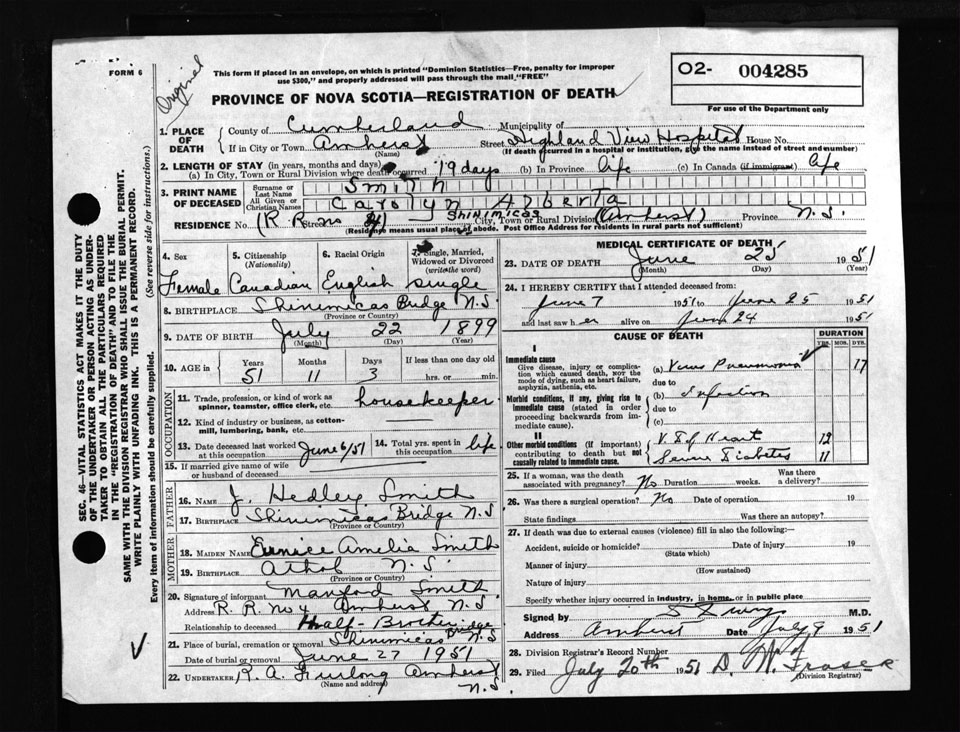 FORM 6
Original
This form if placed in an envelope, on which is printed "Dominion Statistics—Free, penalty for improper
use $300," and properly addressed will pass through the mail "FREE"
PROVINCE OF NOVA SCOTIA—REGISTRATION OF DEATH
O2- 004285
For use of the Department only
SEC. 46—VITAL STATISTICS ACT MAKES IT THE DUTY
OF THE UNDERTAKER OR PERSON ACTING AS UNDER-
TAKER TO OBTAIN ALL THE PARTICULARS REQUIRED
IN THE "REGISTRATION OF DEATH" AND TO FILE THE
SAME WITH THE DIVISION REGISTRAR WHO SHALL ISSUE THE BURIAL PERMIT.
WRITE PLAINLY WITH UNFADING INK. THIS IS A PERMANENT RECORD.
Every item of information should be carefully supplied. (See reverse side for instructions.)
1. PLACE OF DEATH
County of Cumberland Municipality of
If in City or Town Amherst Street Highland View Hospital House No.
(Name) (If death occurred in a hospital or institution, give the name instead of street and number)
2. LENGTH OF STAY (in years, months and days)
(a) In City, Town or Rural Division where death occurred 19 days (b) In Province life (c) In Canada (if immigrant) life
3. PRINT NAME OF DECEASED
Surname or Last Name Smith
All Given or Christian Names Carolyn Alberta
RESIDENCE No. (R. R. no 4) Street Shinimicas City, Town or Rural Division (Amherst) Province N.S.
(Residence means usual place of abode. Post Office Address for residents in rural parts not sufficient)
4. Sex
Female
5. Citizenship (Nationality)
Canadian
6. Racial Origin
English
7. Single, Married, Widowed or Divorced (write the word)
single
8. BIRTHPLACE Shinimicas Bridge N.S
(Province or Country)
9. DATE OF BIRTH July 22 1899
(Month) (Day) (Year)
10. AGE in Years Months Days If less than one day old
51 11 3 hrs. or min.
OCCUPATION
11. Trade, profession, or kind of work as spinner, teamster, office clerk, etc. housekeeper
12. Kind of industry or business, as cotton-mill, lumbering, bank, etc.
13. Date deceased last worked at this occupation June 6/51
14. Total yrs. spent in this occupation life
15. If married give name of wife or husband of deceased
FATHER
16. Name J. Hedley Smith
17. Birthplace Shinimicas Bridge N.S
(Province or Country)
MOTHER
18. Maiden Name Eunice Amelia Smith
19. Birthplace Athol N.S.
(Province or Country)
20. Signature of informant Manford Smith
Address R. R. No 4 Amherst N.S.
Relationship to deceased Half-Brother
21. Place of burial, cremation or removal Shinimicas Bridge N.S
Date of burial or removal June 27 1951
22. UNDERTAKER R. A. Furlong Amherst N.S.
(Name and address)
MEDICAL CERTIFICATE OF DEATH
23. DATE OF DEATH June 25 1951
(Month) (Day) (Year)
24. I HEREBY CERTIFY that I attended deceased from:
June 7 1951 to June 25 1951
and last saw her alive on June 24 1951
CAUSE OF DEATH
DURATION
YRS. MOS. DYS.
I
Immediate cause
Give disease, injury or complication which caused death, NOT the mode of dying, such as heart failure, asphyxia, asthenia, etc.
(a) Virus Pneumonia 17
due to
Morbid conditions, if any, giving rise to immediate cause (stated in order proceeding backwards from immediate cause).
(b) Infection
due to
(c)
II
Other morbid conditions (if important) contributing to death but not causally related to immediate cause.
V.D of Heart 12
Diabetes 11
25. If a woman, was the death associated with pregnancy? No Duration weeks. Was there a delivery?
26. Was there a surgical operation? No Date of operation 19
State findings Was there an autopsy?
27. If death was due to external causes (violence) fill in also the following:—
Accident, suicide or homicide? Date of injury 19
(State which)
Manner of injury
(How sustained)
Nature of injury
Specify whether injury occurred in industry, in home, or in public place
Signed by M.D.
Address Amherst Date July 9 1951
28. Division Registrar's Record Number
29. Filed July 20th 1951 D. H. Fraser
(Division Registrar)